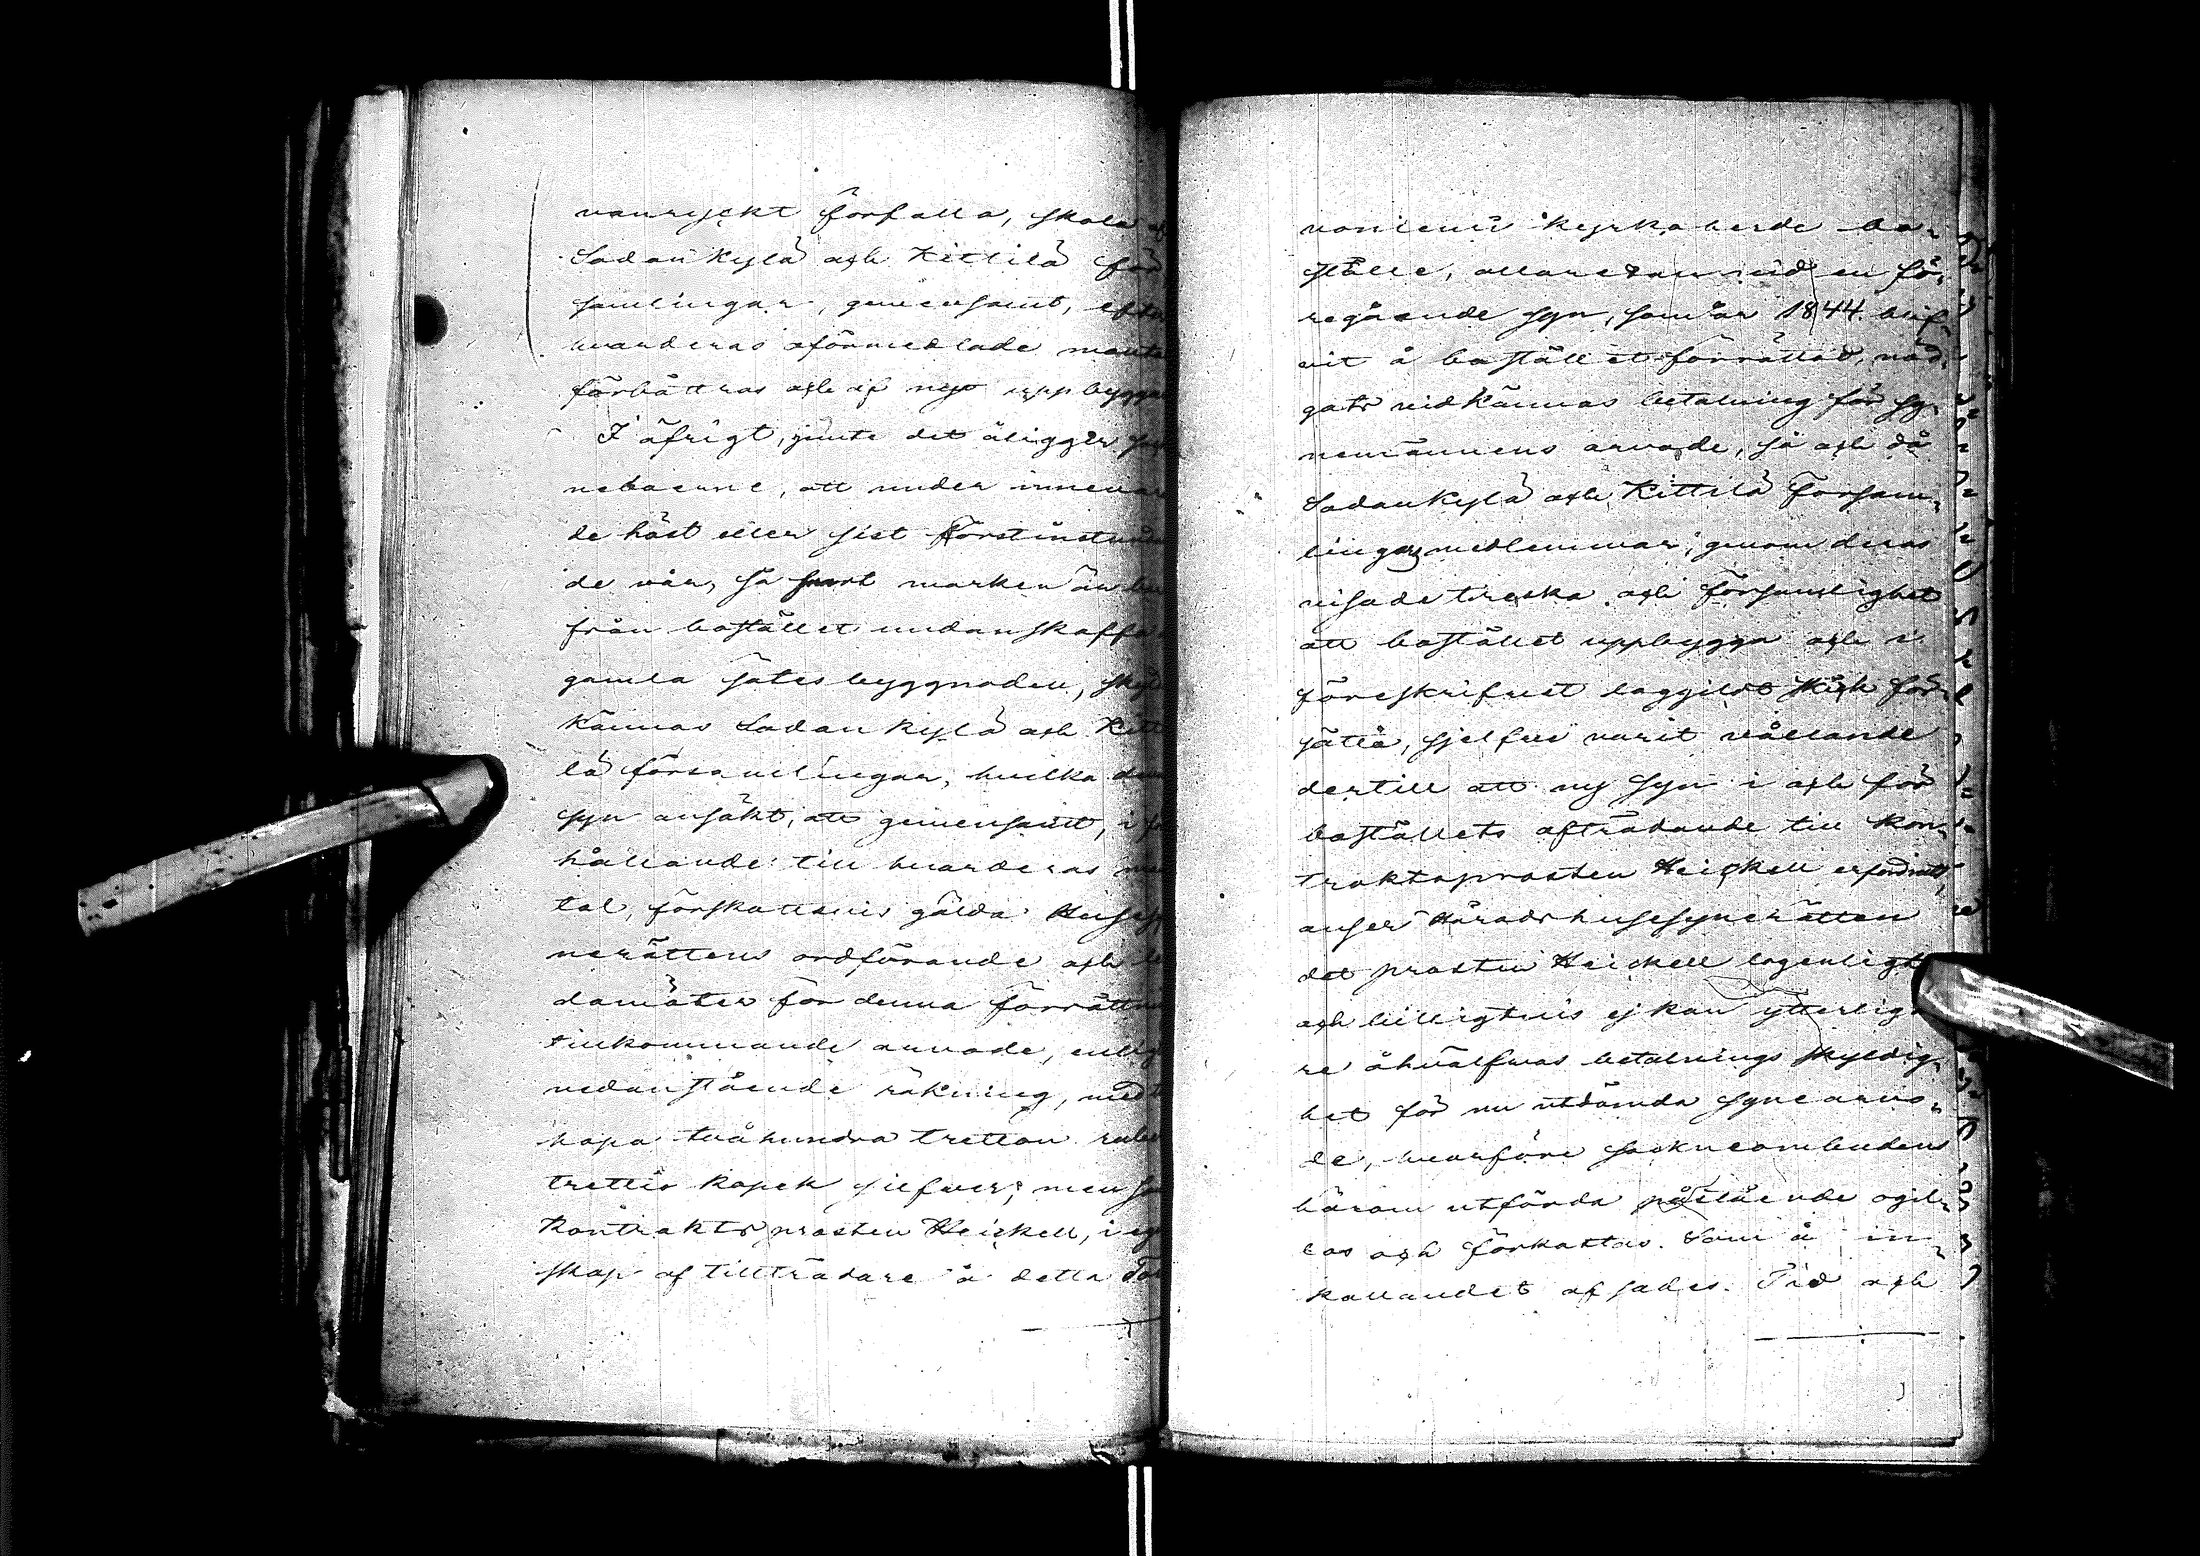 vanryckt förfalla, skola af
Sodankylä och Kittilä för
samlingar, gemensamt, efter
hvarderas oförmedlade mantal
förbättras och af nyo uppbyggas
I öfrigt, jemte det åligger
neboerne, att under innevaran
de höst eller sist förstinstundan
de vår, så snart marken än
från bostället undanskaffa
gamla sätesbyggnaden,
kännas Sodankylä och Kitti
lä församlingar, hvilka denna
syn ansökt, att gemensamt, i för
hållande till hvarderas man
tal, förskottsvis gälda Husesy
nerättens ordförande och le
damöter för denna förrättning
tillkommande arvode, enligt
nedanstående räkning, med
hopa tvåhundra tretton rubel
trettio kopek silfver; men som
Kontraktsprosten Heickell, i egen
skap af tillträdare å detta
vaniemi kyrkoherde bo-
ställe, allaredan vid en fö-
regående syn, som år 1844 blif-
vit å bostället förrättad, nöd-
gats vidkännas betalning för sy-
nemännens arvode, så och då
Sodankylä och Kittilä försam-
lingars medlemmar, genom deras
visade tredska och försumlighet
att bostället uppbygga och i
föreskrifvet laggildt skick för-
sätta, sjelfve varit vållande
dertill att ny syn i och för
boställets afträdande till Kon-
traktsprosten Heickell erfordrats,
anser Häradshusesynerätten
det prosten Heickell lagenligt
och billigtvis ej kan ytterliga-
re åhvälfvas betalnings skyldig-
het för nu utdömda synearvo-
de, hvarföre sockneombudens
härom utförda påstående ogil-
las och förkastas. Som å in-
kallandet afsades. Tid och